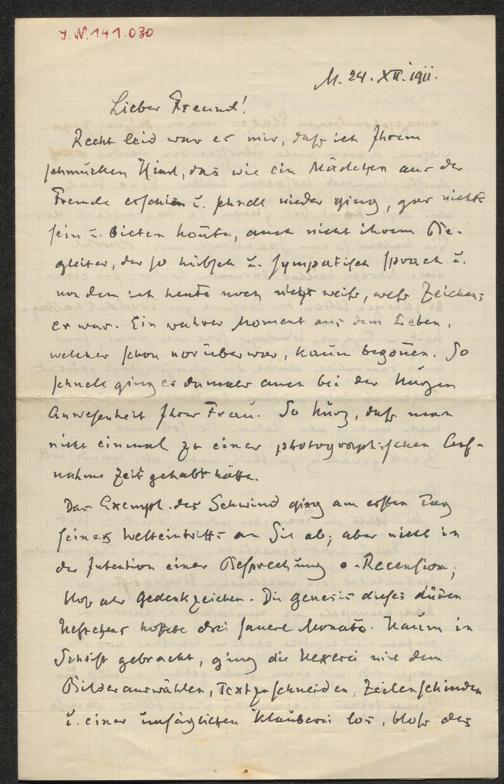 J. N. 141.030
M. 24. XII. 1911.
Lieber Freund!
Recht leid war es mir, daß ich Ihrem
schmucken Kind, das wie ein Mädchen aus der
Fremde erschien u. schnell wieder ging, gar nichts
sein u. bieten konte, auch nicht ihrem Be-
gleiter, der so hübsch u. sympatisch sprach u.
von dem ich heute noch nicht weiß, weß Zeichens
er war. Ein wahrer Moment aus dem Leben,
welcher schon vorüber war, kaum begonen. So
schnell ging es damals auch bei der kurzen
Anwesenheit Ihrer Frau. So kurz, daß man
nicht einmal zu einer photographischen Auf-
nahme Zeit gehabt hätte.
Das Exempl. des Schwind ging am ersten Tag
seines Welteintritts an Sie ab; aber nicht in
der Intention einer Besprechung o. Recension,
blos als Gedenkzeichen. Die Genesis dieses dünen
Heftchens kostete drei sauere Monate. Kaum in
Schrift gebracht, ging die Hexerei mit dem
Bilderauswählen, Textzuschneiden, Zeilenschinden
u. einer unsäglichen Klauberei los, blos des